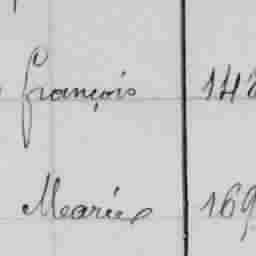 françois 148
Mariee 169